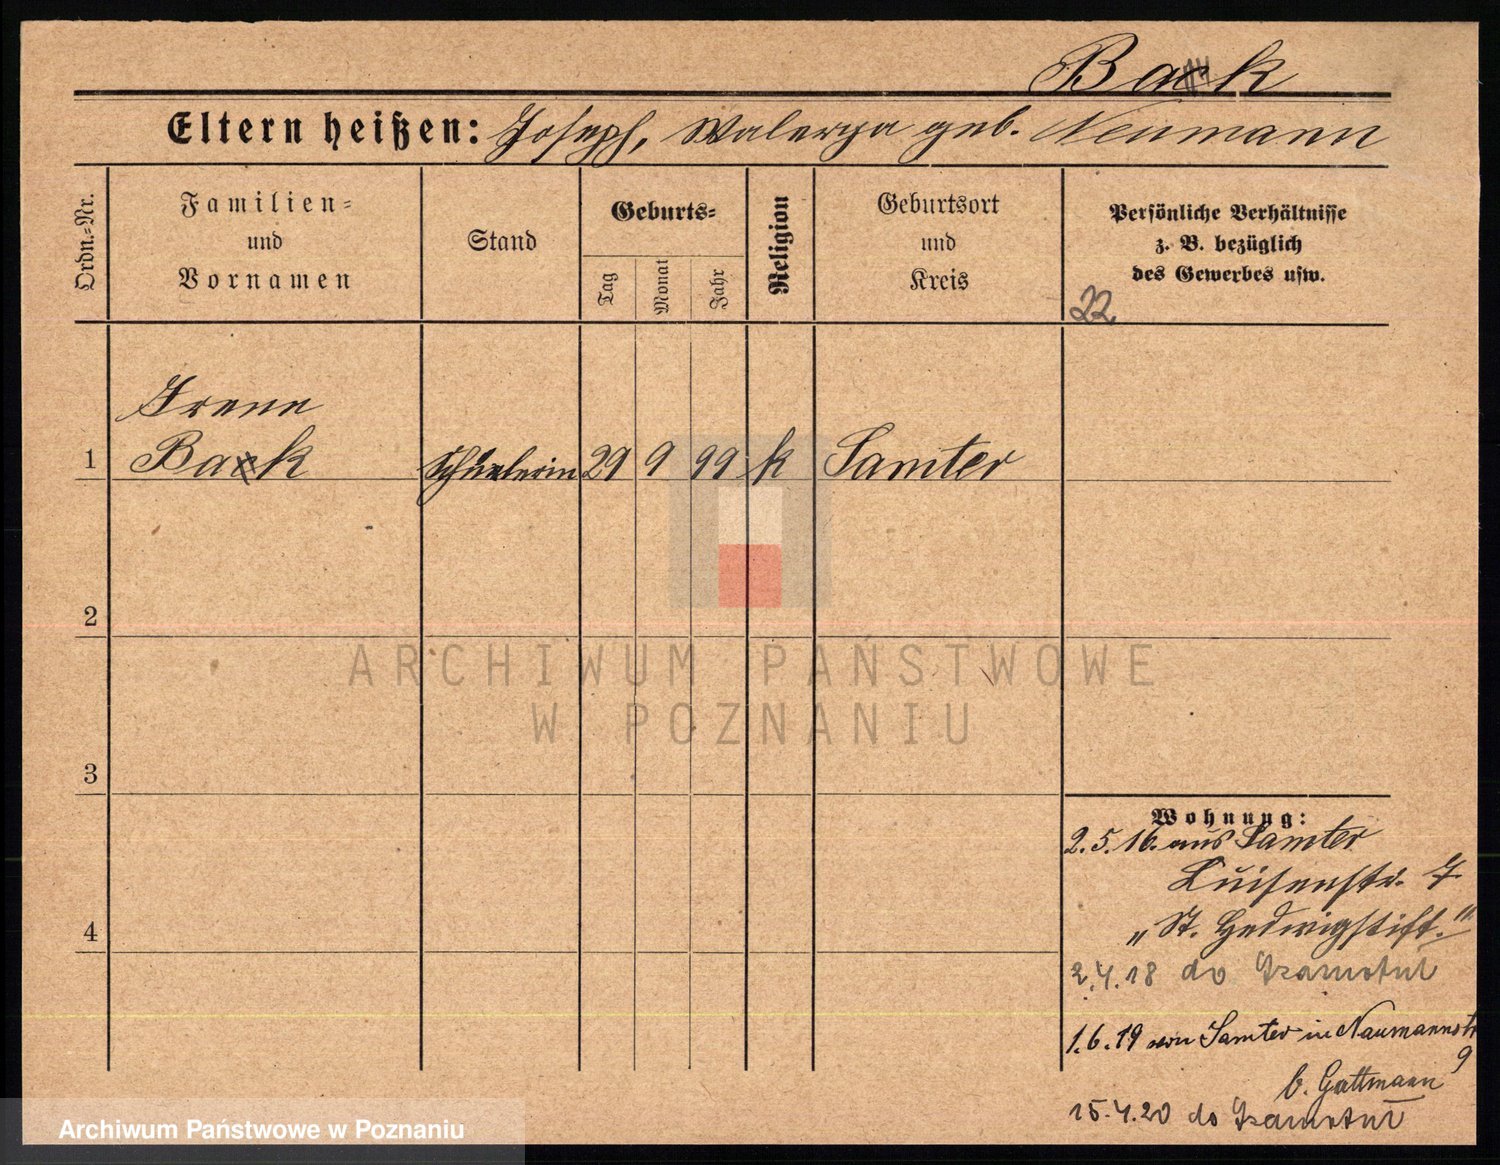 Back
Eltern heißen: Joseph, Walerya geb. Neumann
Ordn.-Nr.
Familien-
und
Vornamen
Stand
Geburts-
Tag
Monat
Jahr
Religion
Geburtsort
und
Kreis
Persönliche Verhältnisse
z. B. bezüglich
des Gewerbes usw.
22
Irene
1 Back Schülerin 29 9 99 k Samter
2
3
4
Wohnung:
2.5.16. aus Samter
Luisenstr. 7
„St. Hedwigstift."
2.4.18 do Szamotuł
1.6.19 von Samter in Naumannstr
9
b. Gattmann
15.4.20 do Szamotuł
ARCHIWUM PAŃSTWOWE
W POZNANIU
Archiwum Państwowe w Poznaniu